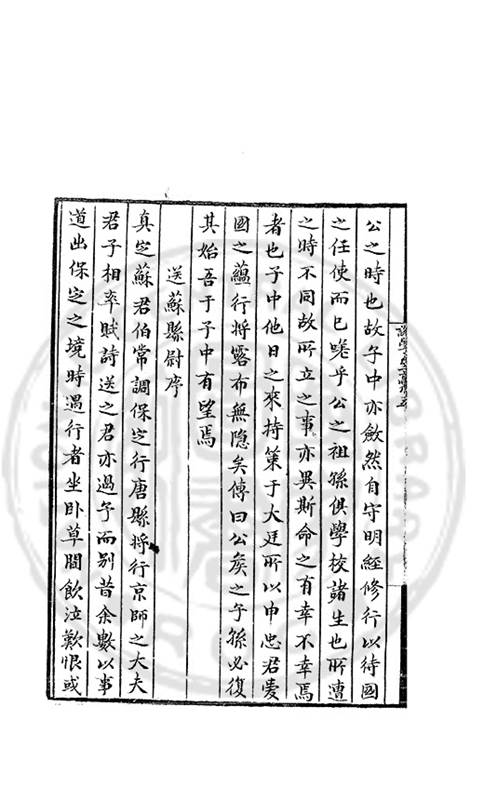 公之時也故子中亦斂然自守明經修行以待國
之任使而已嗟乎公之祖孫俱學校諸生也所遭
之時不同故所立之事亦異斯命之有幸不幸焉
者也子中他日之來持策于大廷所以申忠君愛
國之蘊行將露布無隐矣傳曰公矦之子孫必復
其始吾于子中有望焉
送蘇縣尉序
真定蘇君伯常調保定行唐縣將行京師之大夫
君子相率賦詩送之君亦過予而别昔余數以事
道出保定之境時遇行者坐卧草間飲泣歎恨或